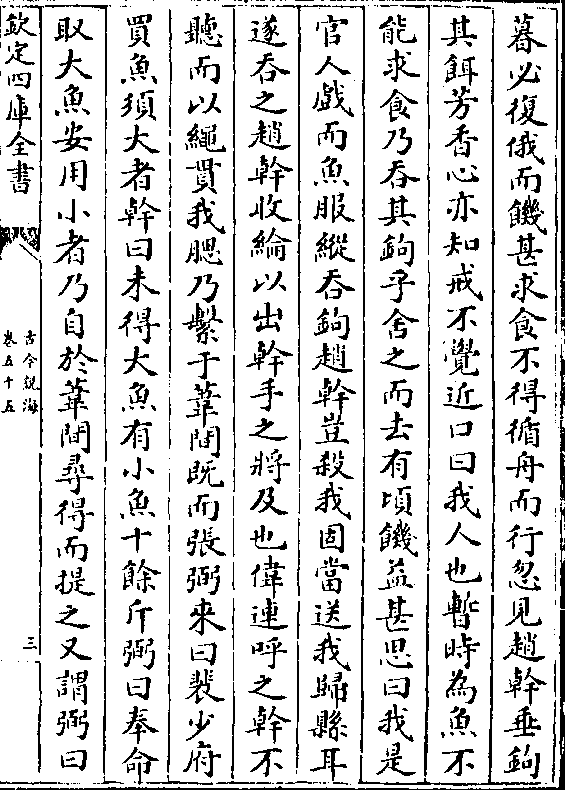 暮必復俄而饑甚求食不得循舟而行忽見趙幹垂鉤
其餌芳香心亦知戒不覺近口曰我人也暫時為魚不
能求食乃吞其鉤乎舍之而去有頃饑益甚思曰我是
官人戲而魚服縱吞鉤趙幹豈殺我固當送我歸縣耳
遂吞之趙幹收綸以出幹手之將及也偉連呼之幹不
聽而以繩貫我腮乃繫于葦間既而張弼來曰裴少府
買魚須大者幹曰未得大魚有小魚十餘斤弼曰奉命
取大魚安用小者乃自於葦間尋得而提之又謂弼曰
欽定四庫全書
古今說海
卷五十五
三